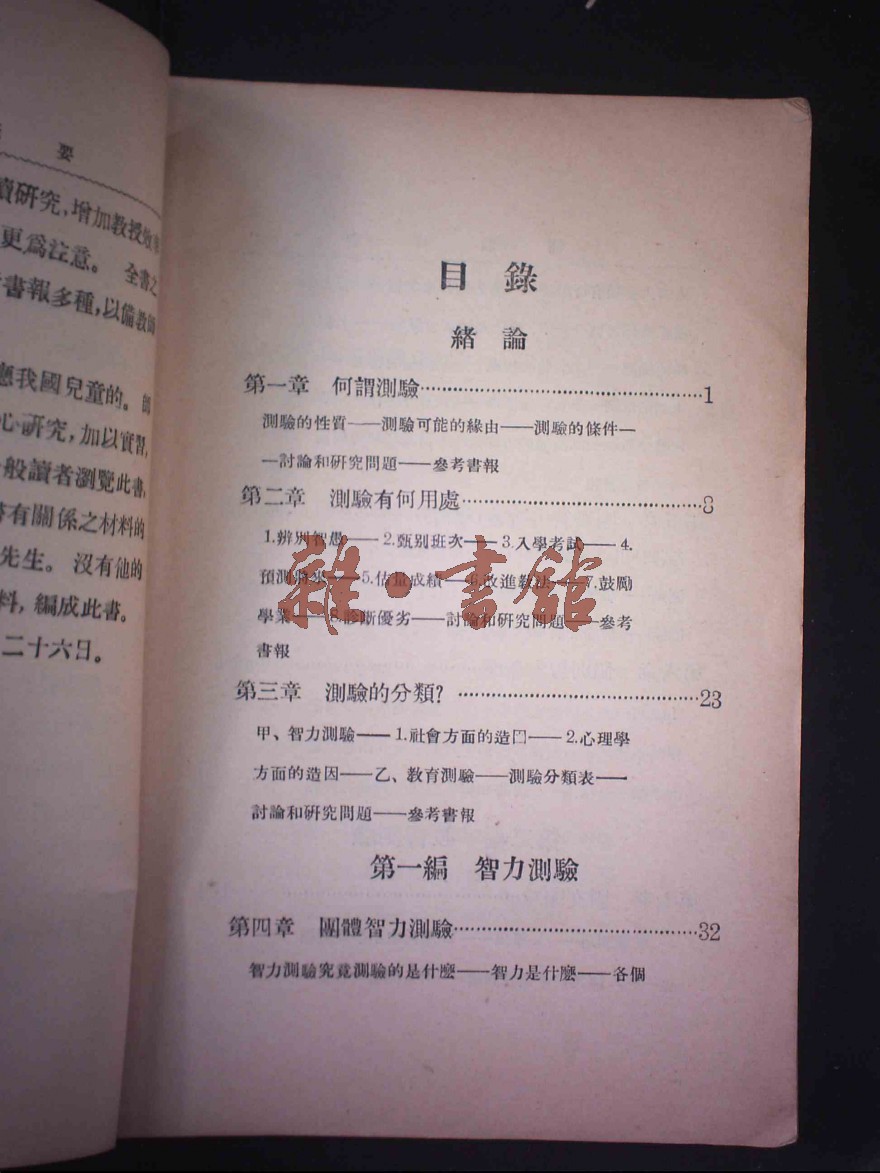 要
讀研究,增加教授效率
更爲注意。 全書之
書報多種,以備教師
應我國兒童的。 師
心研究,加以實習,
般讀者瀏覽此書,
有關係之材料的
先生。 沒有他的
料,編成此書。
二十六日。
目錄
緒論
第一章 何謂測驗……1
測驗的性質——測驗可能的緣由——測驗的條件—
—討論和研究問題——參考書報
第二章 測驗有何用處……8
1.辨別智愚——2.甄別班次——3.入學考試——4.
預測將來——5.估量成績——6.改進教法——7.鼓勵
學業——8.診斷優劣——討論和研究問題——參考
書報
第三章 測驗的分類?……23
甲、智力測驗——1.社會方面的造因——2.心理學
方面的造因——乙、教育測驗——測驗分類表——
討論和研究問題——參考書報
第一編 智力測驗
第四章 團體智力測驗……32
智力測驗究竟測驗的是什麼——智力是什麼——各個
雜·書館